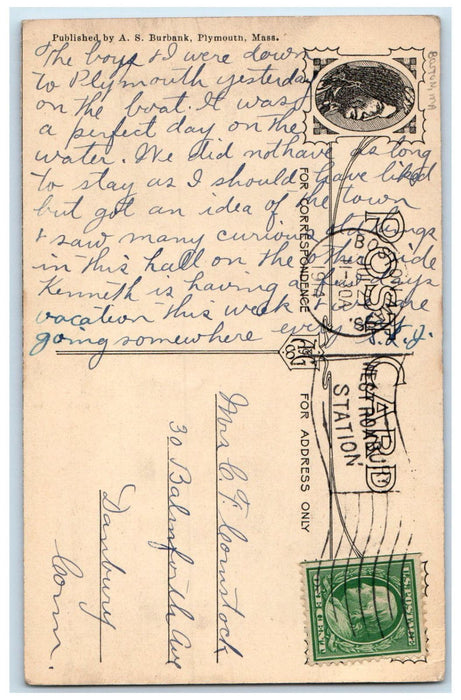 Published by A. S. Burbank, Plymouth, Mass.
The boys & I were down
to Plymouth yesterday
on the boat. It was
a perfect day on the
water. We did not have as long
to stay as I should have liked
but got an idea of the town
& saw many curious things
in this hall on the other side
Kenneth is having a few days
vacation this week & we are
going somewhere every
POST CARD
FOR CORRESPONDENCE
FOR ADDRESS ONLY
BOSTON
11-30A
WEST ROXBURY
STATION
Mrs C. F. Comstock
30 Balmforth Ave
Danbury
Conn.
U.S. POSTAGE
ONE CENT